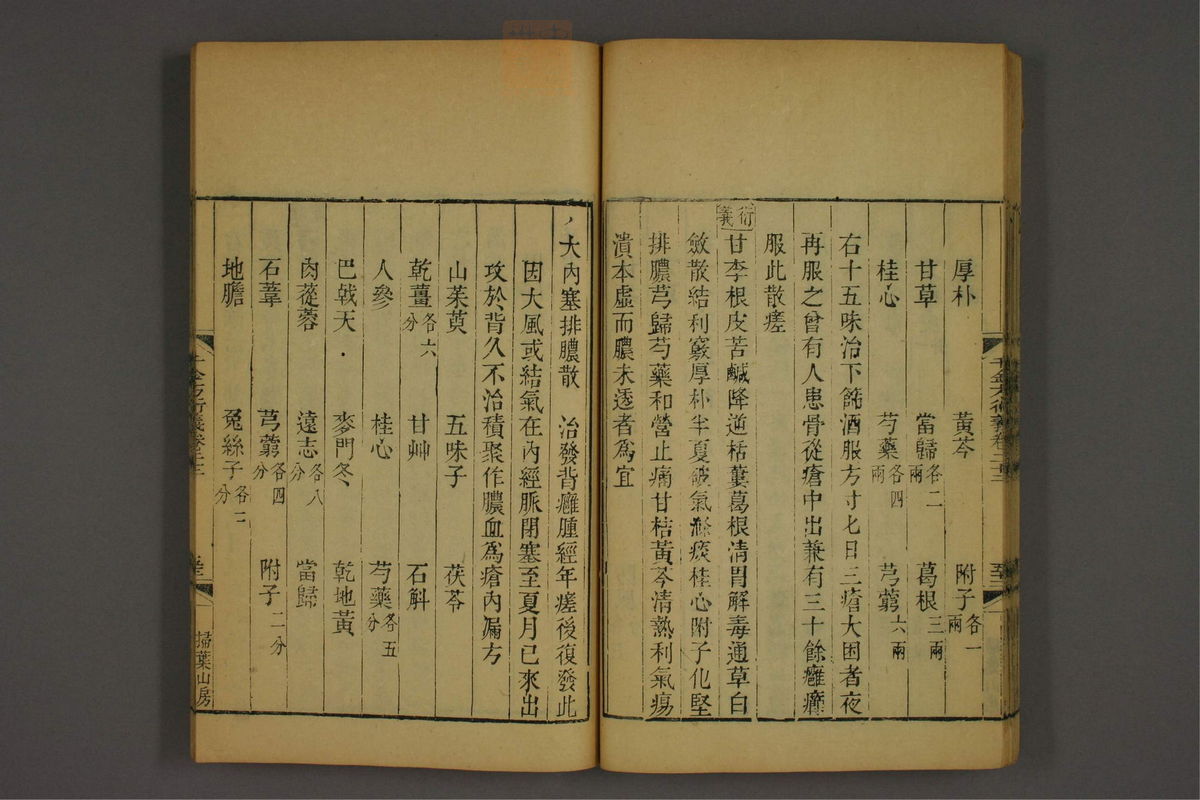 厚朴　黃芩　附子各一兩
甘草　當歸各二兩　葛根三兩
桂心　芍藥各四兩　芎藭六兩
右十五味治下篩酒服方寸匕日三瘡大困者夜
再服之曾有人患骨從瘡中出兼有三十餘癰癤
服此散瘥
衍義甘李根皮苦鹹降逆栝蔞葛根清胃解毒通草白
斂散結利竅厚朴半夏破氣滌痰桂心附子化堅
排膿芎歸芍藥和營止痛甘桔黃芩清熱利氣瘍
潰本虛而膿未透者為宜
大內塞排膿散　治發背癰腫經年瘥後復發此
因大風或結氣在內經脈閉塞至夏月已來出
攻於背久不治積聚作膿血爲瘡內漏方
山茱萸　五味子　茯苓
乾薑各六分　甘艸　石斛
人參　桂心　芍藥各五分
巴戟天　麥門冬　乾地黃
肉蓯蓉　遠志各八分　當歸
石葦　芎藭各四分　附子二分
地膽　菟絲子各三分
千金方衍義卷二十二
掃葉山房